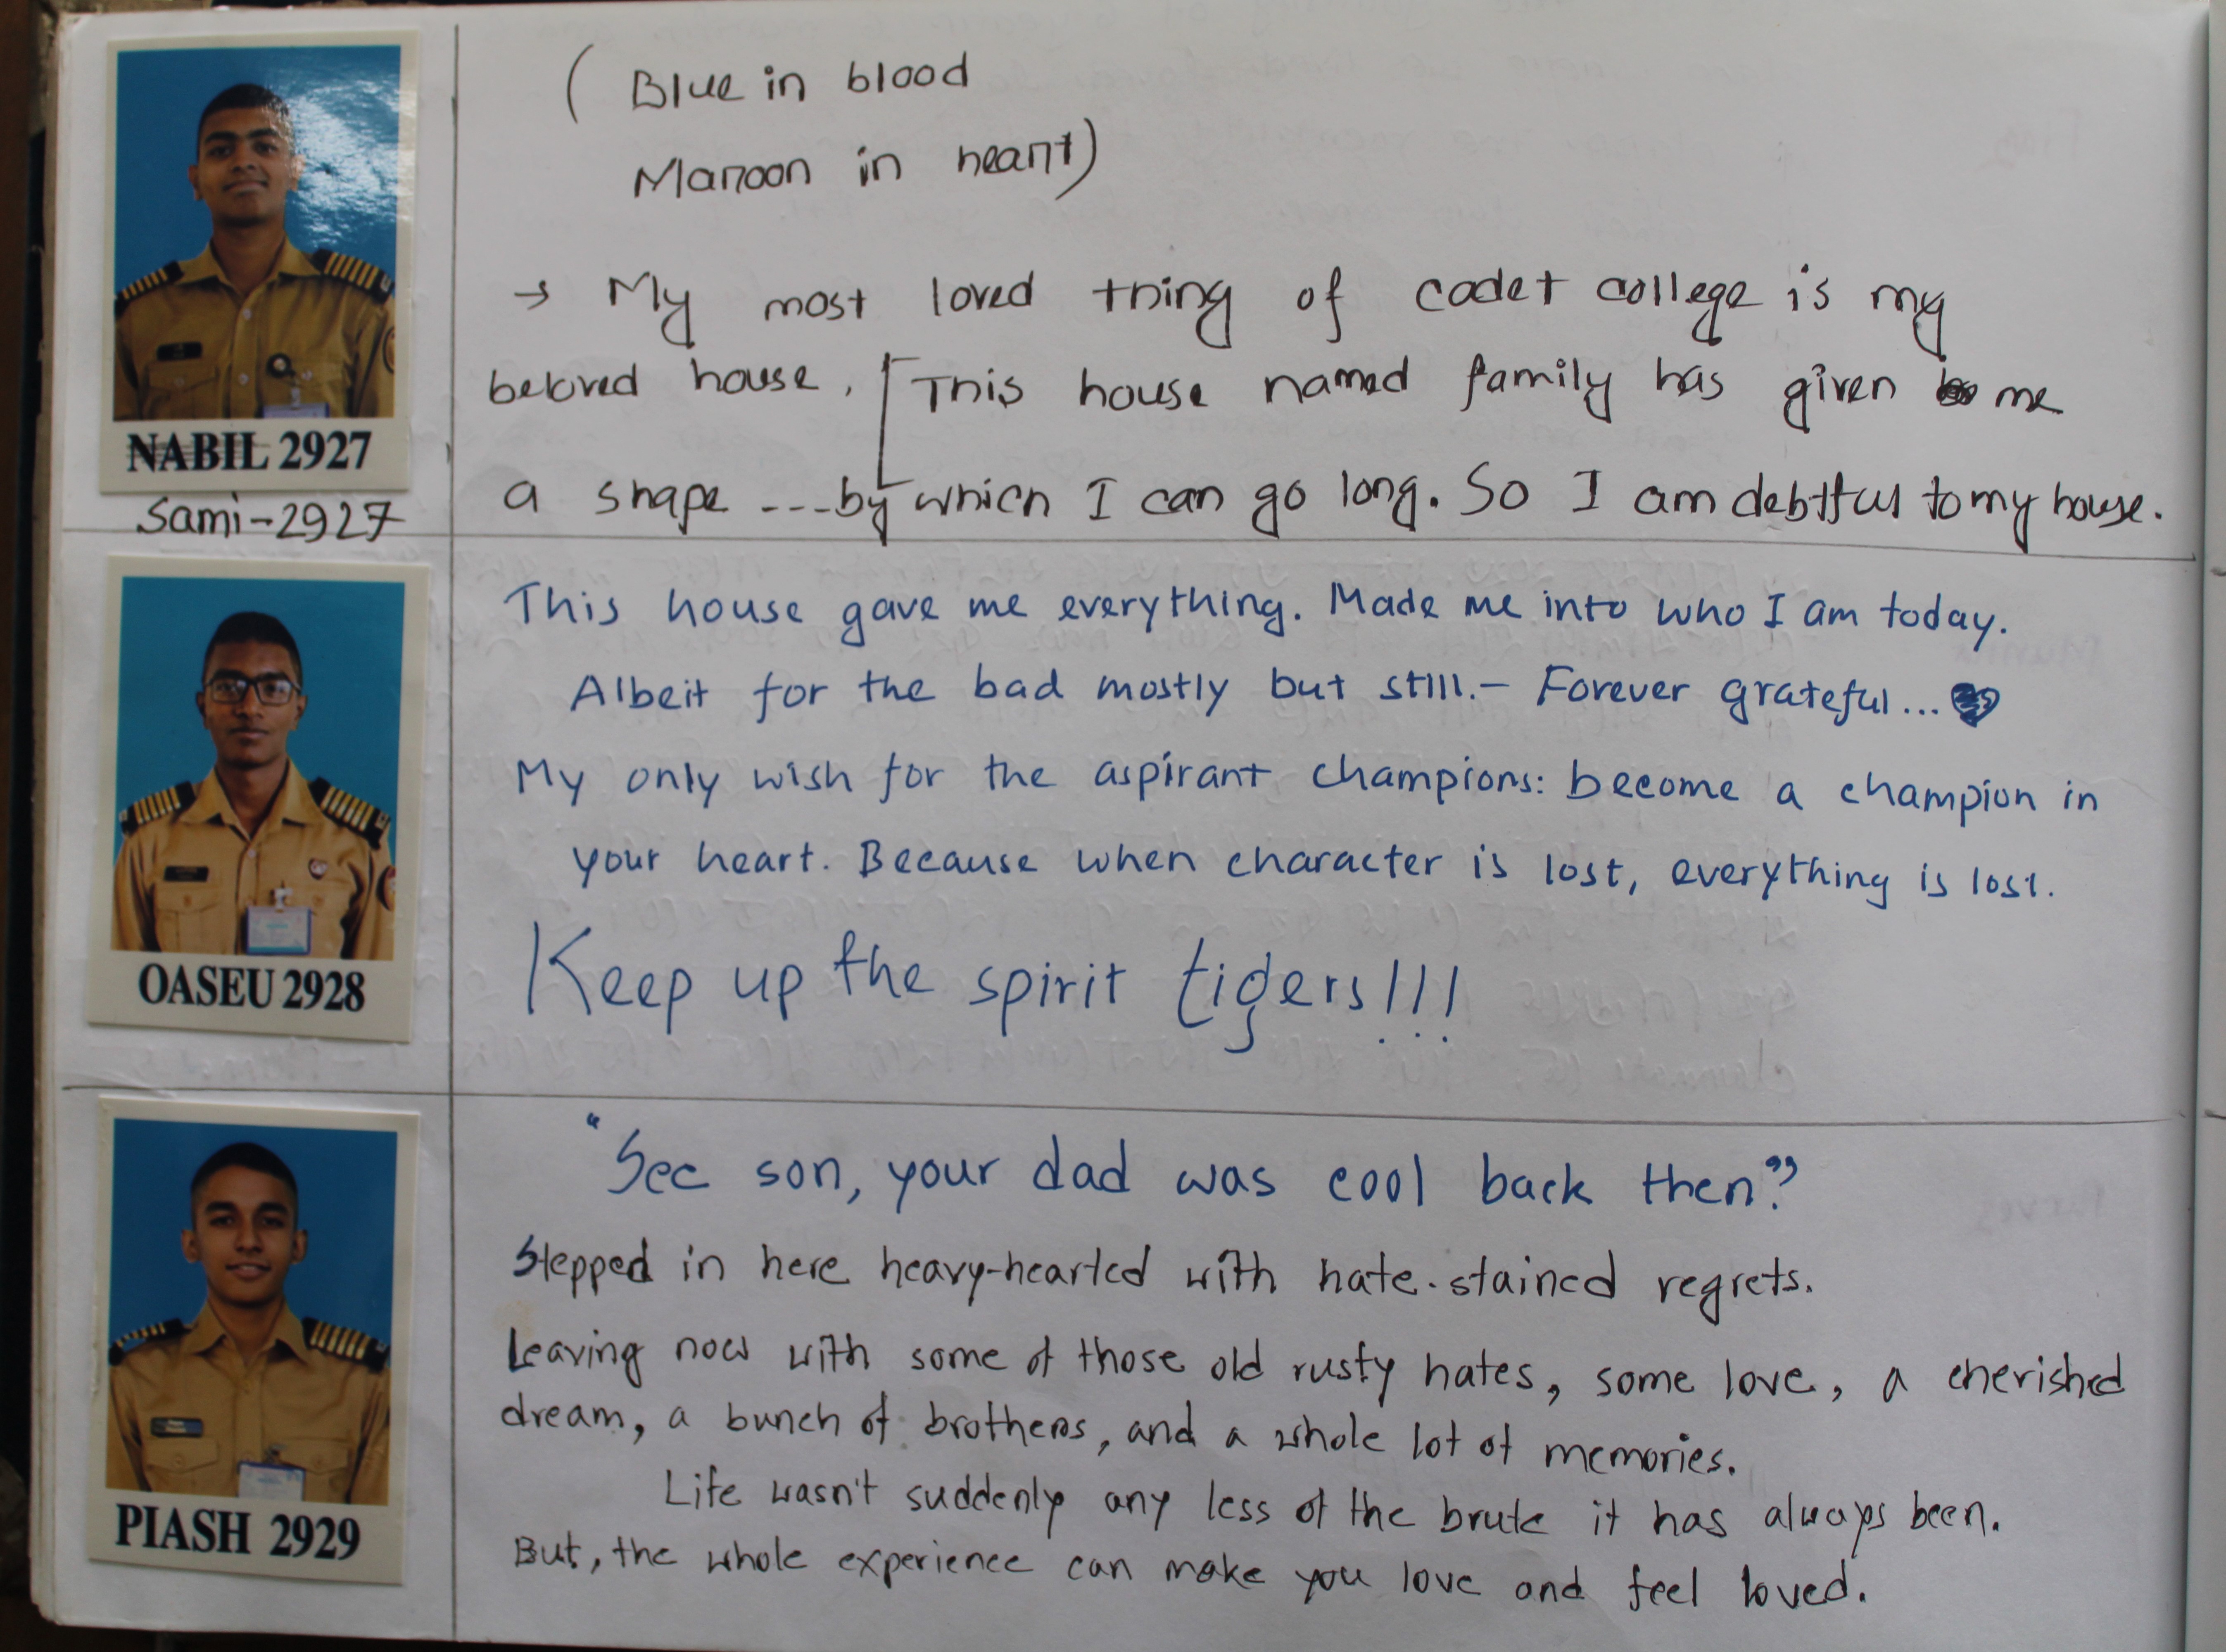 ( Blue in blood
Maroon in heart)
→ My most loved thing of cadet college is my
beloved house. [This house named family has given me
a shape ---by which I can go long. So I am debtful to my house.
NABIL 2927
Sami-2927
This house gave me everything. Made me into who I am today.
Albeit for the bad mostly but still.- Forever grateful...
My only wish for the aspirant champions: become a champion in
your heart. Because when character is lost, everything is lost.
Keep up the spirit tigers!!!
OASEU 2928
"See son, your dad was cool back then?"
Stepped in here heavy-hearted with hate-stained regrets.
Leaving now with some of those old rusty hates, some love, a cherished
dream, a bunch of brothers, and a whole lot of memories.
Life wasn't suddenly any less of the brute it has always been.
But, the whole experience can make you love and feel loved.
PIASH 2929